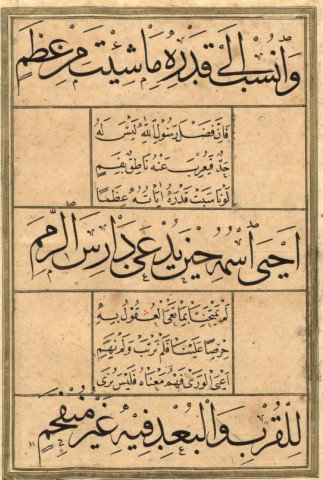 وَانْسُبْ اِلٰى قَدْرِهِ مَا شِئْتَ مِنْ عِظَمٍ
فَاِنَّ فَضْلَ رَسُولِ اللّٰهِ لَيْسَ لَهُ
حَدٌّ فَيُعْرِبَ عَنْهُ نَاطِقٌ بِفَمٍ
لَوْ نَاسَبَتْ قَدْرَهُ اٰيَاتُهُ عِظَمًا
اَحْيَى اسْمُهُ حِينَ يُدْعٰى دَارِسَ الرِّمَمِ
لَمْ يَمْتَحِنَّا بِمَا تَعْيَى الْعُقُولُ بِهِ
حِرْصًا عَلَيْنَا فَلَمْ نَرْتَبْ وَلَمْ نَهِمِ
اَعْيَى الْوَرٰى فَهْمُ مَعْنَاهُ فَلَيْسَ يُرٰى
لِلْقُرْبِ وَالْبُعْدِ فِيهِ غَيْرُ مُنْفَحِمٍ